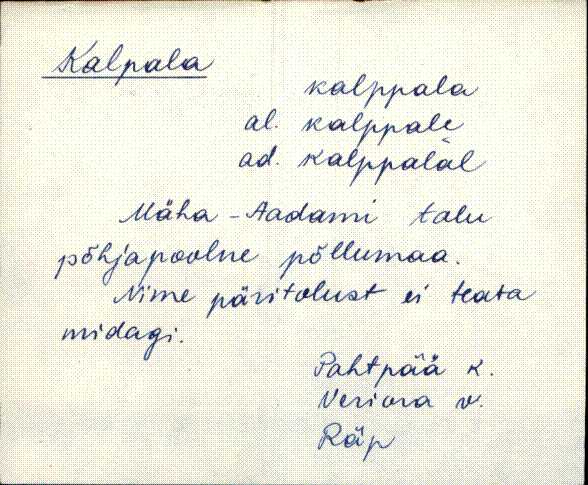 Kalpala
kalppala
al. kalppale
ad. kalppalal
Mäha-Aadami talu
põhjapoolne põllumaa.
Nime päritolust ei teata
midagi.
Pahtpää k.
Veriora v.
Räp